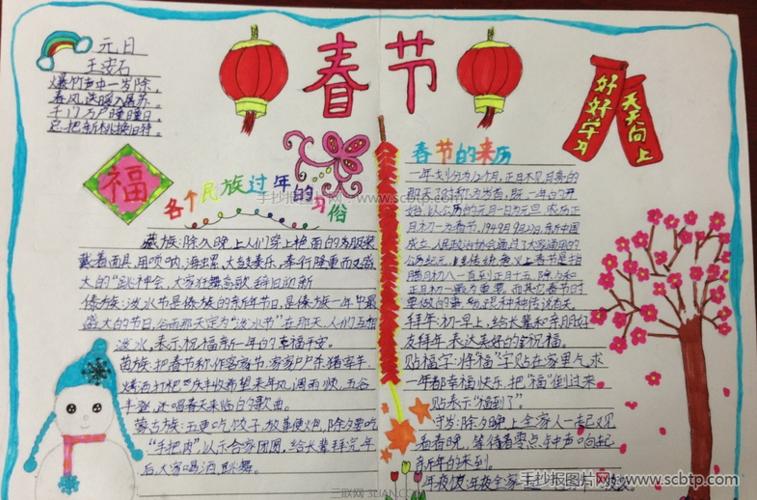 春节
元日
王安石
爆竹声中一岁除,
春风送暖入屠苏。
千门万户曈曈日,
总把新桃换旧符。
福
各个民族过年的习俗
藏族:除夕晚上人们穿上艳丽的服装
戴着面具,用唢呐、海螺、大鼓奏乐,举行隆重而又盛
大的“跳神会,大家狂舞高歌辞旧迎新
傣族:泼水节是傣族的新年节日,是傣族一年中最
盛大的节日,
定为“泼水节”在那天,人们互相
泼水,表示祝福新一年的幸福平安。
苗族:把春节称作客家节,家家户户杀猪宰羊
烤酒打粑 庆丰收希望来年风调雨顺,五谷
丰登,还唱春天来临的歌曲。
蒙古族:五更吃饺子、放鞭炮,除夕要吃
“手把肉”以示合家团圆,给长辈拜完年
后,大家喝酒、跳舞。
春节的来历
一年划分为12个月,
那天 称为岁首,既一年的开
始,以公历的元月一日为元旦,农历正
月初一为春节。1949年9月27日,新中国
成立,人民政治协会通过了
公历纪元,传统意义上春节是指
腊月初八一直到正月十五,除夕和
正月初一最为重要,而其它春节时
拜年:初一早上,给长辈和亲朋好
友拜年,表达美好的祝福。
贴福字:将“福”字贴在家里,乞求
一年都幸福、快乐,把“福”倒过来
贴表示“福到了”。
守岁:除夕晚上全家人一起观
看春晚,等待着零点钟声响起
新年的来到。
好好学习
天天向上
手抄报图片网 www.scbtp.com
三联网 3LIAN.COM
手抄报图片网
www.scbtp.com